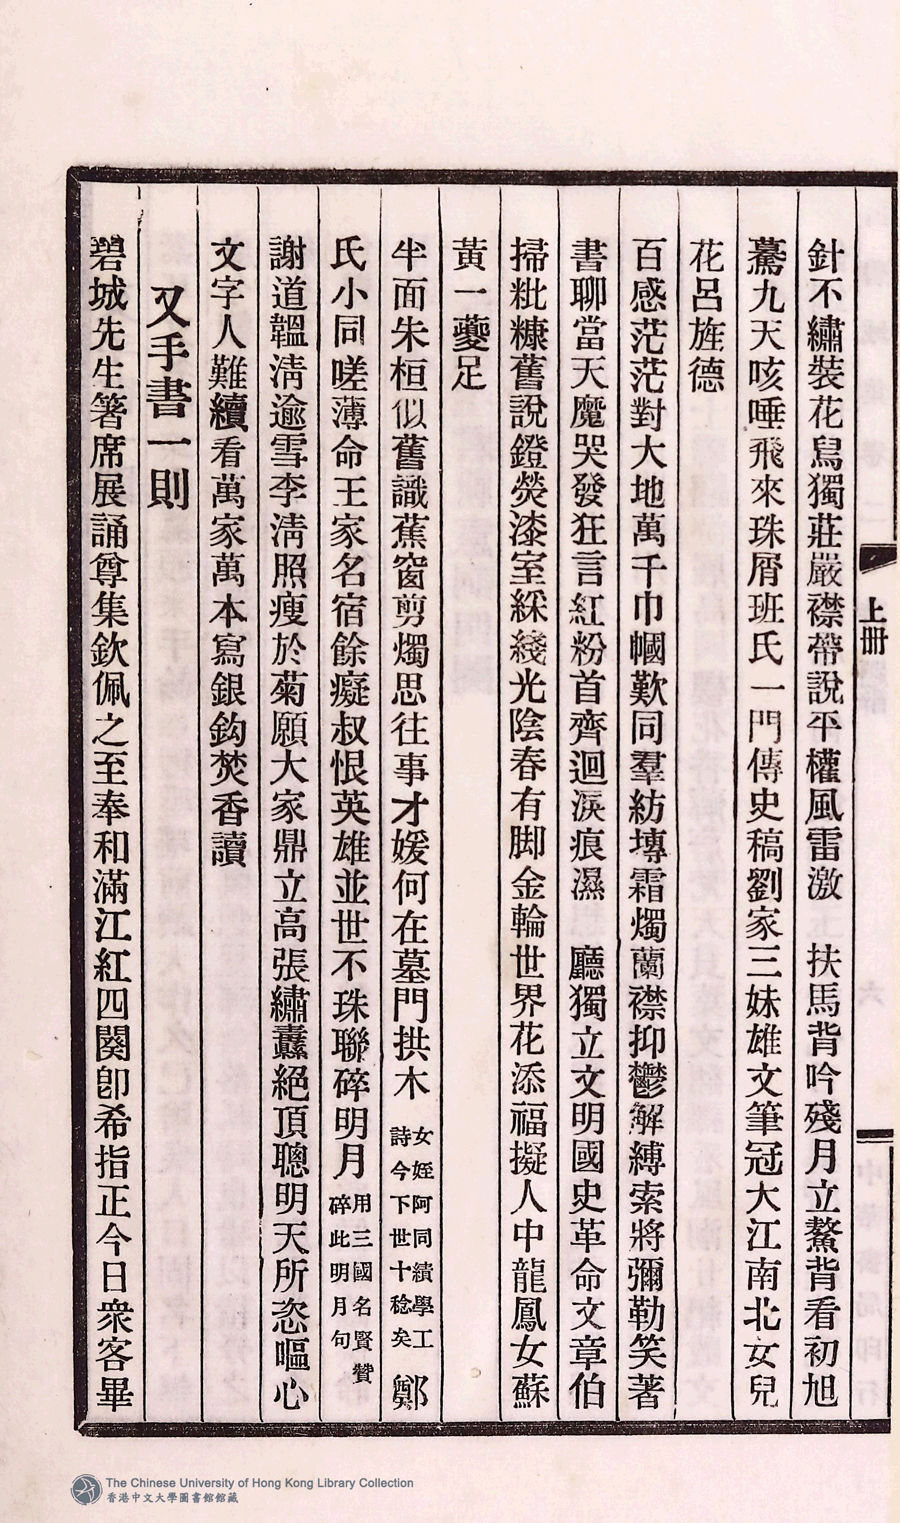 上册
針不繡裝花鳥獨莊嚴襟帶說平權風雷激　扶馬背吟殘月立鰲背看初旭
驚九天咳唾飛來珠屑班氏一門傳史稿劉家三妹雄文筆冠大江南北女兒
花呂旌德
百感茫茫對大地萬千巾幗歎同羣紡塼霜燭蘭襟抑鬱解縛索將彌勒笑著
書聊當天魔哭發狂言紅粉首齊迴淚痕濕　廳獨立文明國史革命文章伯
掃粃糠舊說鐙熒漆室綵綫光陰春有脚金輪世界花添福擬人中龍鳳女蘇
黃一夔足
半面朱桓似舊識蕉窗剪燭思往事才媛何在墓門拱木女姪阿同績學工詩今下世十稔矣鄭
氏小同嗟薄命王家名宿餘癡叔恨英雄並世不珠聯碎明月用三國名賢贊碎此明月句
謝道韞清逾雪李清照瘦於菊願大家鼎立高張繡纛絕頂聰明天所恣嘔心
文字人難續看萬家萬本寫銀鈎焚香讀
又手書一則
碧城先生箸席展誦尊集欽佩之至奉和滿江紅四闋卽希指正今日衆客畢
The Chinese University of Hong Kong Library Collection
香港中文大學圖書館館藏